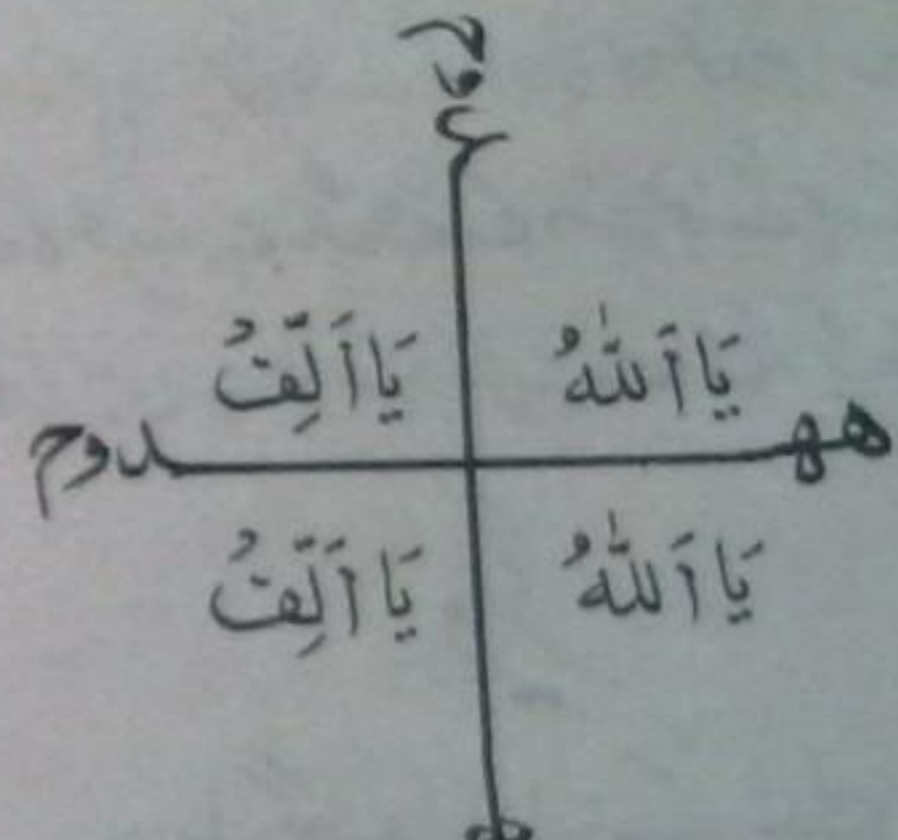 يَا اَللّٰهُ يَا اَلِّفُ
ههـ
يَا اَللّٰهُ يَا اَلِّفُ